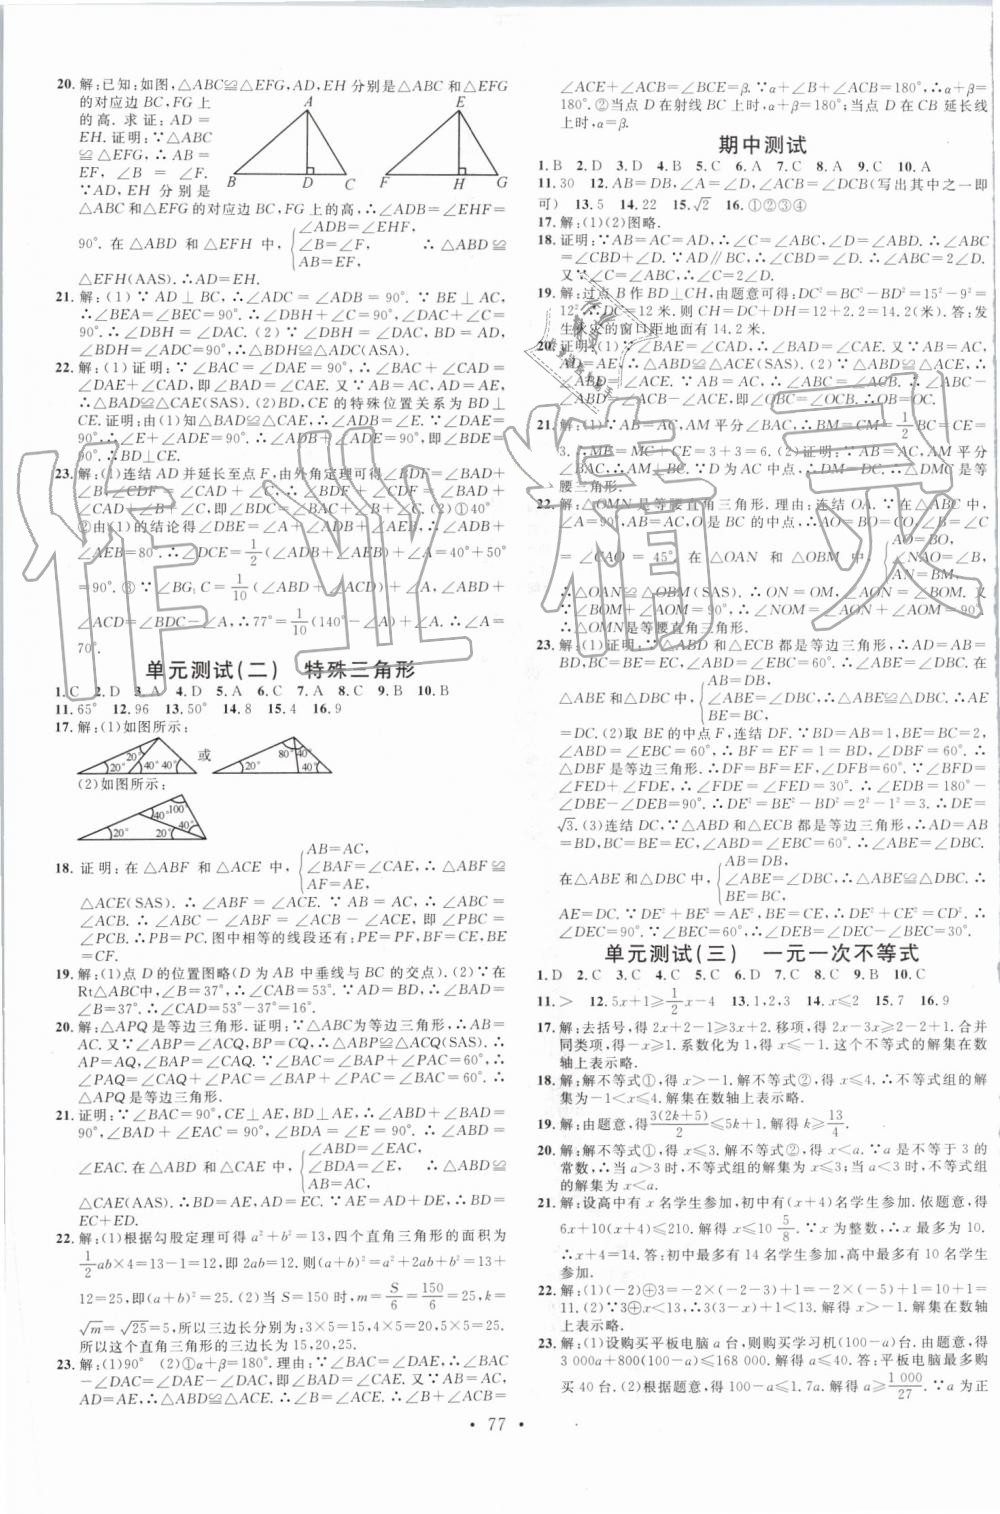 20. 解:已知:如图,△ABC≌△EFG,AD,EH 分别是△ABC 和△EFG
的对应边 BC,FG 上
的高. 求证:AD=
EH. 证明:∵△ABC
≌△EFG,∴AB=
EF,∠B=∠F.
∵AD,EH 分别是
△ABC和△EFG的对应边BC,FG上的高,∴∠ADB=∠EHF=
A
B D C
E
F H G
90°. 在△ABD 和△EFH 中, {∠ADB=∠EHF, ∠B=∠F, AB=EF, ∴△ABD≌
△EFH(AAS). ∴AD=EH.
21. 解:(1)∵AD⊥BC,∴∠ADC=∠ADB=90°. ∵BE⊥AC,
∴∠BEA=∠BEC=90°. ∴∠DBH+∠C=90°,∠DAC+∠C=
90°. ∴∠DBH=∠DAC. (2)∵∠DBH=∠DAC,BD=AD,
∠BDH=∠ADC=90°,∴△BDH≌△ADC(ASA).
22. 解:(1)证明:∵∠BAC=∠DAE=90°,∴∠BAC+∠CAD=
∠DAE+∠CAD,即∠BAD=∠CAE. 又∵AB=AC,AD=AE,
∴△BAD≌△CAE(SAS). (2)BD,CE 的特殊位置关系为 BD⊥
CE. 证明:由(1)知△BAD≌△CAE,∴∠ADB=∠E. ∵∠DAE=
90°,∴∠E+∠ADE=90°. ∴∠ADB+∠ADE=90°. 即∠BDE=
90°. ∴BD⊥CE.
23. 解:(1)连结 AD 并延长至点 F,由外角定理可得∠BDF=∠BAD+
∠B,∠CDF=∠C+∠CAD. ∵∠BDC=∠BDF+∠CDF,∴∠BDC=∠BAD+
∠B+∠C+∠CAD. ∴∠BDC=∠BAC+∠B+∠C. (2)①40°
②由(1)的结论得∠DBE=∠A+∠ADB+∠AEB,∴∠ADB+
∠AEB=80°. ∴∠DCE=1/2(∠ADB+∠AEB)+∠A=40°+50°
=90°. ③∵∠BG₁C=1/10(∠ABD+∠ACD)+∠A,∠ABD+
∠ACD=∠BDC-∠A,∴77°=1/10(140°-∠A)+∠A. ∴∠A=
70°.
单元测试(二) 特殊三角形
1. C 2. D 3. A 4. D 5. A 6. C 7. A 8. C 9. B 10. B
11. 65° 12. 96 13. 50° 14. 8 15. 4 16. 9
17. 解:(1)如图所示:
20° 20° 40° 40° 或 80° 40° 20° 40°
(2)如图所示:
40° 100° 20° 20° 40°
18. 证明:在△ABF 和△ACE 中, {AB=AC, ∠BAF=∠CAE, AF=AE, ∴△ABF≌
△ACE(SAS). ∴∠ABF=∠ACE. ∵AB=AC,∴∠ABC=
∠ACB. ∴∠ABC-∠ABF=∠ACB-∠ACE,即∠PBC=
∠PCB. ∴PB=PC. 图中相等的线段还有:PE=PF,BE=
CF.
19. 解:(1)点 D 的位置图略(D 为 AB 中垂线与 BC 的交点). (2)∵在
Rt△ABC中,∠B=37°,∴∠CAB=53°. 又∵AD=BD,∴∠BAD=
∠B=37°. ∴∠CAD=53°-37°=16°.
20. 解:△APQ是等边三角形. 证明:∵△ABC为等边三角形,∴AB=
AC. 又∵∠ABP=∠ACQ,BP=CQ,∴△ABP≌△ACQ(SAS). ∴
AP=AQ,∠BAP=∠CAQ. ∵∠BAC=∠BAP+∠PAC=60°,∴
∠PAQ=∠CAQ+∠PAC=∠BAP+∠PAC=∠BAC=60°. ∴
△APQ是等边三角形.
21. 证明:∵∠BAC=90°,CE⊥AE,BD⊥AE,∴∠ABD+∠BAD=
90°,∠BAD+∠EAC=90°,∠BDA=∠E=90°. ∴∠ABD=
∠EAC. 在△ABD 和△CAE 中, {∠ABD=∠EAC, ∠BDA=∠E, AB=AC, ∴△ABD≌
△CAE(AAS). ∴BD=AE,AD=EC. ∵AE=AD+DE,∴BD=
EC+ED.
22. 解:(1)根据勾股定理可得 a²+b²=13,四个直角三角形的面积为
1/2ab×4=13-1=12,即 2ab=12,则(a+b)²=a²+2ab+b²=13+
12=25,即(a+b)²=25. (2)当 S=150 时,m=S/6=150/6=25,k=
√m=√25=5,所以三边长分别为:3×5=15,4×5=20,5×5=25.
所以这个直角三角形的三边长为15,20,25.
23. 解:(1)90° (2)①α+β=180°. 理由:∵∠BAC=∠DAE,∴∠BAC
-∠DAC=∠DAE-∠DAC,即∠BAD=∠CAE. 又∵AB=AC,
AD=AE,∴△ABD≌△ACE. ∴∠B=∠ACE. ∴∠B+∠ACB=
∠ACE+∠ACB=∠BCE=β. ∵α+∠B+∠ACB=180°,∴α+β=
180°. ②当点 D 在射线 BC 上时,α+β=180°;当点 D 在 CB 延长线
上时,α=β.
期中测试
1. B 2. D 3. D 4. B 5. C 6. A 7. C 8. A 9. C 10. A
11. 30 12. AB=DB,∠A=∠D,∠ACB=∠DCB(写出其中之一即
可) 13. 5 14. 22 15. √2 16. ①②③④
17. 解:(1)(2)图略.
18. 证明:∵AB=AC=AD,∴∠C=∠ABC,∠D=∠ABD. ∴∠ABC
=∠CBD+∠D. ∵AD∥BC,∴∠CBD=∠D. ∴∠ABC=2∠D.
又∵∠C=∠ABC,∴∠C=2∠D.
19. 解:过点 B 作 BD⊥CH,由题意可得:DC²=BC²-BD²=15²-9²=
12²,∴DC=12米. 则 CH=DC+DH=12+2.2=14.2(米). 答:发
生火灾的窗口距地面有14.2米.
20. 证明:(1)∵∠BAE=∠CAD,∴∠BAD=∠CAE. 又∵AB=AC,
AD=AE,∴△ABD≌△ACE(SAS). (2)∵AB=AC,∴∠ABC=
∠ACB. ∵△ABD≌△ACE,∴∠ABD=∠ACE. ∴∠ABC-
∠ABD=∠ACB-∠ACE,即∠OBC=∠OCB. ∴OB=OC.
21. 解:(1)∵AB=AC,AM平分∠BAC,∴BM=CM=1/2BC=CE=
3. ∴ME=MC+CE=3+3=6. (2)∵AB=AC,AM平分
∠BAC,∴AM⊥BC. ∵D为AC中点,∴DM=DC. ∴△DMC是等
腰三角形.
22. 解:△OMN是等腰直角三角形. 理由:连结 OA. ∵在△ABC中,
∠A=90°,AB=AC,O是 BC 的中点,∴AO=BO=CO,∠B=∠C=∠BAO=
∠CAO=45°. 在△OAN 和△OBM 中, {AO=BO, ∠NAO=∠B, AN=BM,
∴△OAN≌△OBM(SAS). ∴ON=OM,∠AON=∠BOM. 又
∵∠BOM+∠AOM=90°,∴∠NOM=∠AON+∠AOM=90°.
∴△OMN是等腰直角三角形.
23. 解:(1)证明:∵△ABD和△ECB都是等边三角形,∴AD=AB=
BD,BC=BE=EC,∠ABD=∠EBC=60°. ∴∠ABE=∠DBC. 在
△ABE 和△DBC 中, {AB=DB, ∠ABE=∠DBC, BE=BC, ∴△ABE≌△DBC(SAS). ∴AE
=DC. (2)取 BE 的中点 F,连结 DF. ∵BD=AB=1,BE=BC=2,
∠ABD=∠EBC=60°,∴BF=EF=1=BD,∠DBF=60°. ∴
△DBF是等边三角形. ∴DF=BF=EF,∠DFB=60°. ∵∠BFD=
∠FED+∠FDE,∴∠EDF=∠FED=30°. ∴∠EDB=180°-
∠DBE-∠DEB=90°. ∴DE²=BE²-BD²=2²-1²=3. ∴DE=
√3. (3)连结 DC,∵△ABD和△ECB都是等边三角形,∴AD=AB=
BD,BC=BE=EC,∠ABD=∠EBC=60°. ∴∠ABE=∠DBC.
在△ABE 和△DBC 中, {AB=DB, ∠ABE=∠DBC, BE=BC, ∴△ABE≌△DBC(SAS). ∴
AE=DC. ∵DE²+BE²=AE²,BE=CE,∴DE²+CE²=CD². ∴
∠DEC=90°. ∵∠BEC=60°,∴∠DEB=∠DEC-∠BEC=30°.
单元测试(三) 一元一次不等式
1. D 2. C 3. C 4. C 5. C 6. D 7. D 8. C 9. B 10. C
11. > 12. 5x+1≥1/2x-4 13. 1,2,3 14. x≤2 15. 7 16. 9
17. 解:去括号,得 2x+2-1≥3x+2. 移项,得 2x-3x≥2-2+1. 合并
同类项,得-x≥1. 系数化为1,得x≤-1. 这个不等式的解集在数
轴上表示略.
18. 解:解不等式①,得x>-1. 解不等式②,得x≤4. ∴不等式组的解
集为-1<x≤4. ∴不等式组的解集在数轴上表示略.
19. 解:由题意,得3(2k+5)/2≤5k+1. 解得k≥13/4.
20. 解:解不等式①,得x≤3. 解不等式②,得x<a. ∵a是不等于3的
常数,∴当a>3时,不等式组的解集为x≤3;当a<3时,不等式组
的解集为x<a.
21. 解:设高中有x名学生参加,初中有(x+4)名学生参加. 依题意,得
6x+10(x+4)≤210. 解得x≤10 5/8. ∵x为整数,∴x最多为10.
∴x+4=14. 答:初中最多有14名学生参加,高中最多有10名学生
参加.
22. 解:(1)(-2)⊕3=-2×(-2-3)+1=-2×(-5)+1=10+1=
11. (2)∵3⊕x<13,∴3(3-x)+1<13. 解得x>-1. 解集在数轴
上表示略.
23. 解:(1)设购买平板电脑a台,则购买学习机(100-a)台. 由题意,得
3 000a+800(100-a)≤168 000. 解得a≤40. 答:平板电脑最多购
买40台. (2)根据题意,得100-a≤1.7a. 解得a≥1 000/27. ∵a为正
• 77 •
作业精灵